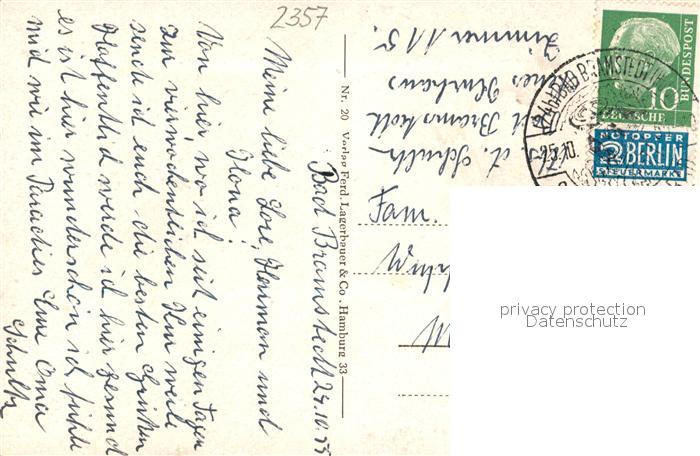 2357
Bad Bramstedt 24.10.55
Meine liebe Lore, Hermann und
Ilona!
Von hier, wo ich seit einigen Tagen
zur vierwöchentlichen Kur weile
sende ich euch die besten Grüßen
Hoffentlich werde ich hier gesund
es ist hier wunderschön ich fühle
mich wie im Paradies Eure Oma
Schultz
Nr. 20 Verlag Ferd. Lagerbauer & Co., Hamburg 33
Bad Bramstedt
Kurhaus
Zimmer 115.
Fam.
BAD BRAMSTEDT
25.10.
10
DEUTSCHE
BUNDESPOST
NOTOPFER
2 BERLIN
STEUERMARKE
privacy protection
Datenschutz